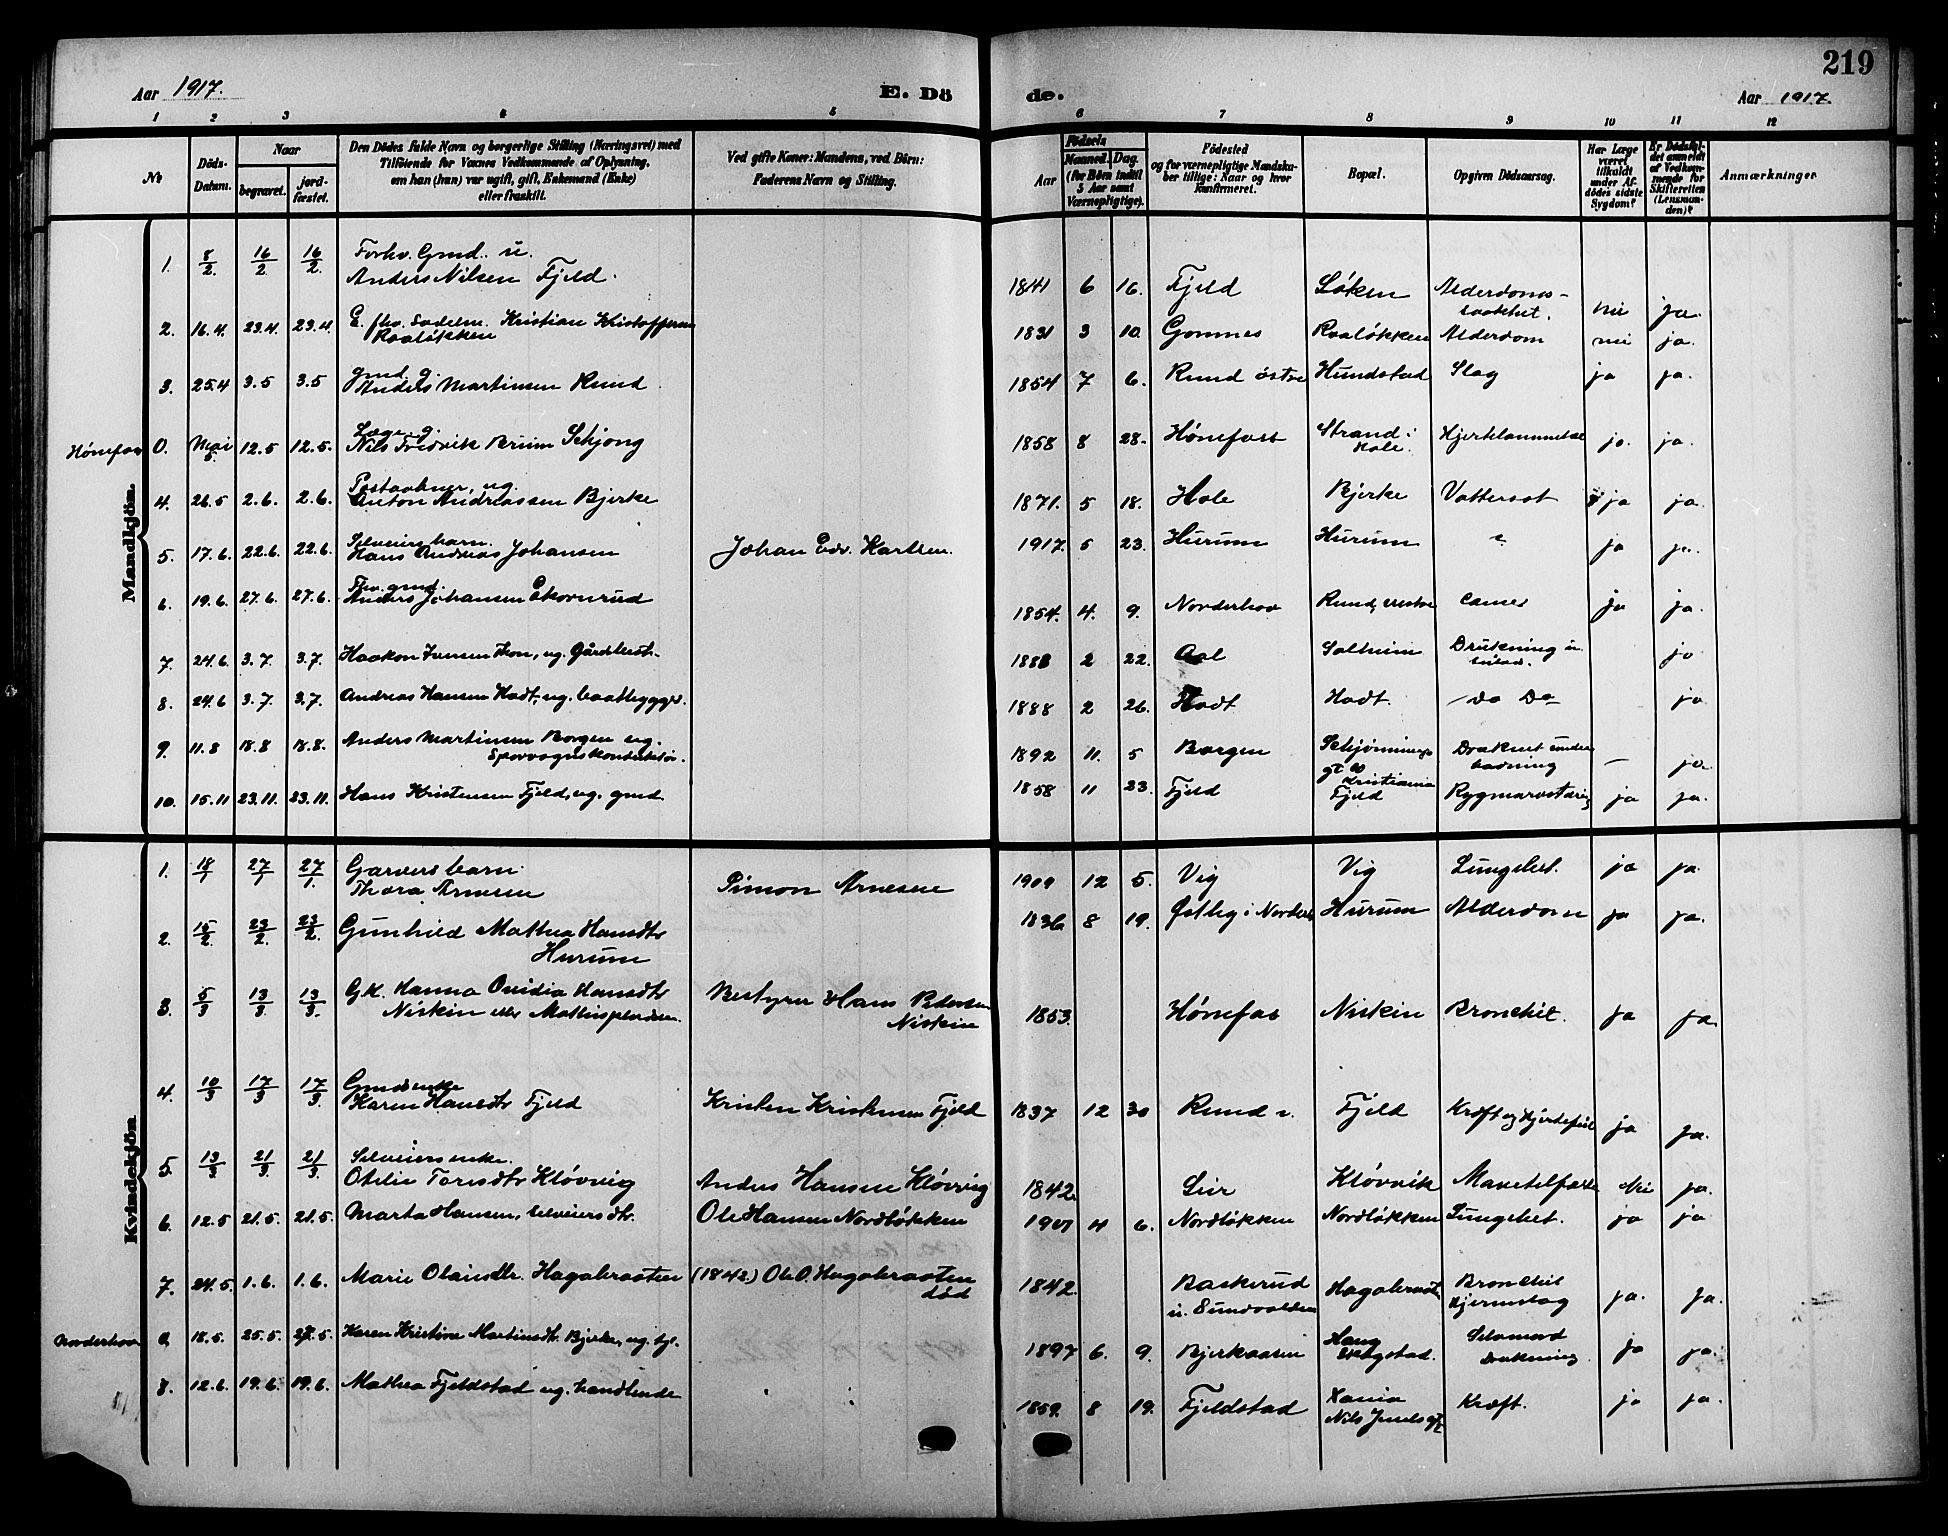 219
Aar 1917. E. Dö de. Aar 1917.
1 2 3 4 5 6 7 8 9 10 11 12
No
Döds-Datum.
Naar
begravet. jord-fæstet.
Den Dödes fulde Navn og borgerlige Stilling (Næringsvei) med
Tilföiende for Voxnes Vedkommende af Oplysning,
om han (hun) var ugift, gift, Enkemand (Enke)
eller fraskilt.
Ved gifte Koner: Mandens, ved Börn:
Faderens Navn og Stilling.
Födsels
Aar Maaned. Dag.
(for Börn indtil
5 Aar samt
Værnepligtige).
Födested
og for værnepligtige Mandska-
ber tillige: Naar og hvor
konfirmeret.
Bopæl.
Opgiven Dödsaarsag.
Har Læge
været
tilkaldt
under Af-
dödes sidste
Sygdom?
Er Dödsfal-
det anmeldt
af Vedkom-
mende for
Skifteretten
(Lensman-
den)?
Anmærkninger
Mandkjön.
1. 8/2. 16/2 16/2 Forhv. Gmd. u.
Anders Nilsen Fjeld. 1841 6 16. Fjeld Løken Alderdoms-
nei ja.
2. 16.4. 23.4. 23.4. E. fhv. Kristian Kristoffersen
Raaløkken 1831 3 10. Gomnes Raaløkken Alderdom nei ja.
3. 25.4 3.5 3.5 gmd. g.
Anders Martinsen Rund 1854 7 6. Rund østre Hundstad Slag ja ja.
Hønefos 0. Mai 5. 12.5 12.5. Læge g.
Nils Fredrik Schjong 1858 8 28. Hønefoss Strand i
Hole. ja. ja.
4. 26.5 2.6. 2.6. Postaabner, ug.
Anton Andreassen Bjerke 1871. 5 18. Hole Bjerke Vattersot ja ja.
5. 17.6. 22.6. 22.6. Selveiers barn.
Hans Andreas Johansen Johan Edv. 1917. 5 23. Hurum Hurum ? ja ja.
6. 19.6. 27.6. 27.6. Fhv. gmd.
Anders Johansen Ekornrud 1854. 4. 9. Norderhov Rund, vestre Cancer ja ja.
7. 24.6. 3.7. 3.7. Haakon Iversen Thon, ug. Gårdbest. 1888 2 22. Aal Solheim Drukning ja
8. 24.6 3.7. 3.7. Andreas Hansen Hadt, ug. baatbygger. 1888 2 26. Hadt Hadt. Do Do ja
9. 11.8 18.8 18.8. Anders Martinsen Borgen ug.
Sporvognskonduktør. 1892 11. 5 Borgen Schjønnings
gt 20
Kristiania Druknet under
badning — ja.
10. 15.11 23.11. 23.11. Hans Kristensen Fjeld, ug. gmd. 1858 11 23. Fjeld Fjeld Rygmarvstæring ja ja.
Kvindekjön
1. 18/1 27/1 27/1. Garvers barn.
Thora Arnesen Simon Arnesen 1909 12 5. Vig Vig Lungebet. ja ja.
2. 15/2. 23/2 23/2. Gunhild Mathea Hansdtr
Hurum 1836 8 19. Østby i Norderh. Hurum Alderdom ja ja.
3. 5/3 13/3 13/3. G.K. Hanna Ovidia Hansdtr
Niskin eller Bestyrer Hans Pedersen
Niskin 1853. Hønefos Niskin Bronchit. ja ja.
4. 10/3 17/3 17/3. Gmdsenke
Karen Hansdtr Fjeld Kristen Kristensen Fjeld 1837 12 30 Rund v. Fjeld Kræft og Hjertefeil ja ja.
5. 13/3 21/3. 21/3. Selveiersenke.
Otilie Torsdtr Kløvvig Anders Hansen Kløvvig 1842. Lier Kløvvik Mavetilfælde Nei ja.
6. 12.5 21.5. 21.5. Marta Hansen, selveiersdtr. Ole Hansen Nordløkken 1901 4 6. Nordløkken Nordløkken Lungebet. ja ja
7. 24.5. 1.6. 1.6. Marie Olavsdtr. Hagabraaten (1842) Ole O. Hagabraaten
død 1842. Baskerud
u. Sundvolden Hagabraaten Bronchit
Hjerneslag ja. ja.
Norderhov 0. 18.5. 25.5. 25.5. Karen Kristine Martinsdtr. Bjerke, ug. tj. 1897 6. 9. Bjerkaasen Haug
Skøgstad. Selvmord
Drukning ja ja.
8. 12.6. 19.6. 19.6. Mathea Fjeldstad ug. handlende 1859. 8 19. Fjeldstad Xania
Nils Juels gt Kræft. ja ja.